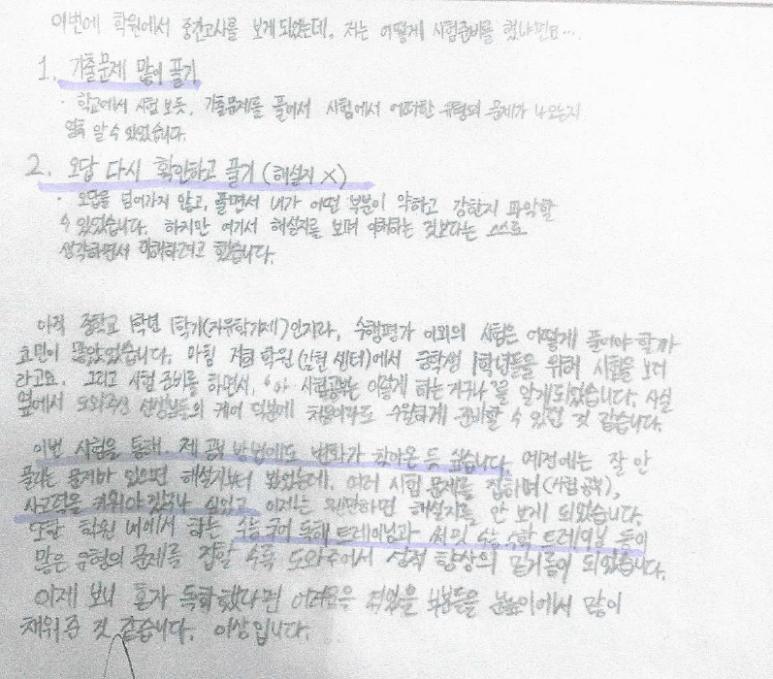 이번에 학원에서 중간고사를 보게 되었는데, 저는 어떻게 시험준비를 했냐면요...
1. 기출문제 많이 풀기
· 학교에서 시험 보듯, 기출문제를 풀어서 시험에서 어떠한 유형의 문제가 나오는지
알 수 있었습니다.
2. 오답 다시 확인하고 풀기 (해설지 X)
· 오답을 넘어가지 않고, 풀면서 내가 어떤 부분이 약하고 강한지 파악할
수 있었습니다. 하지만 여기서 해설지를 보며 이해하는 것보다는 스스로
생각하면서 하려고 했습니다.
아직 중학교 1학년 1학기(자유학기제)인지라, 수행평가 이외의 시험은 어떻게 풀어야 할까
고민이 많았었습니다. 마침 저희 학원(김천 센터)에서 중학생 1학년들을 위해 시험을 보더
라고요. 그리고 시험 준비를 하면서, '아 시험공부는 이렇게 하는 거구나'를 알게되었습니다. 사실
옆에서 도와주신 선생님들의 케어 덕분에 처음이라도 수월하게 준비할 수 있던 것 같습니다.
이번 시험을 통해, 제 공부 방법에도 변화가 찾아온 듯 싶습니다. 예전에는 잘 안
풀리는 문제가 있으면 해설지부터 봤었는데, 여러 시험 문제를 접하며(시험 공부),
사고력을 키워야겠구나 싶었고 이제는 웬만하면 해설지를 안 보게 되었습니다.
또한 학원 내에서 하는 수능 국어 독해 트레이닝과 수능 수학 트레이닝 등이
많은 유형의 문제를 접할 수록 도와주어서 성적 향상의 밑거름이 되었습니다.
이제 보니 혼자 독학했다면 어려움을 겪었을 부분들을 눈높이에서 많이
채워준 것 같습니다. 이상입니다.